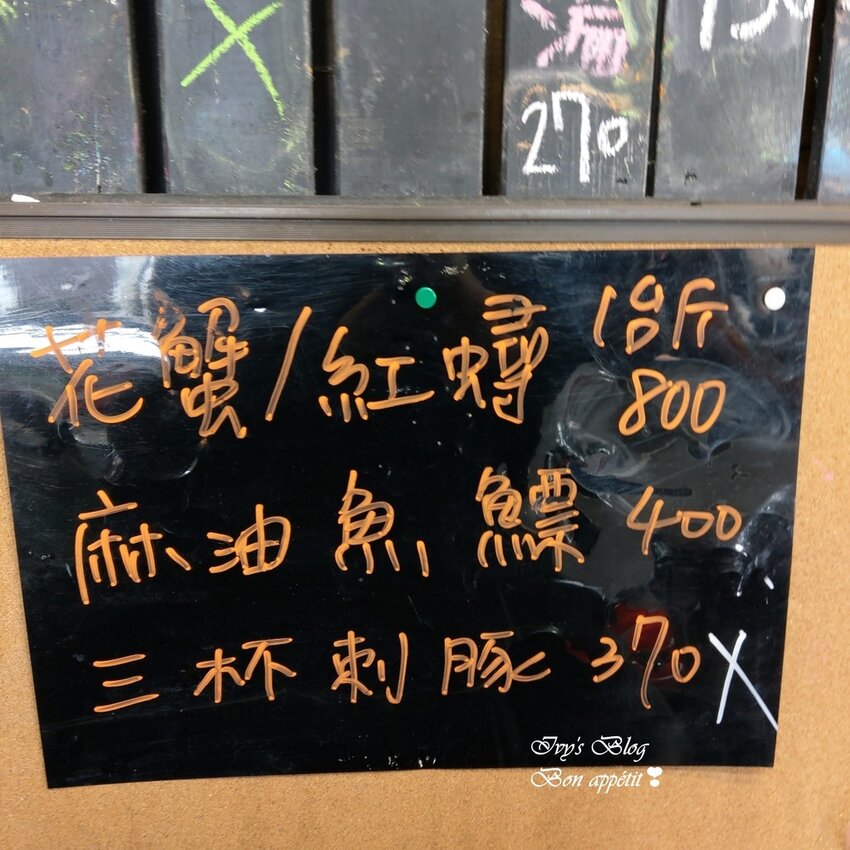 270
花蟹/紅蟳 1台斤
800
麻油魚鰾 400
三杯刺豚 370 X
Ivy's Blog
Bon appétit❣